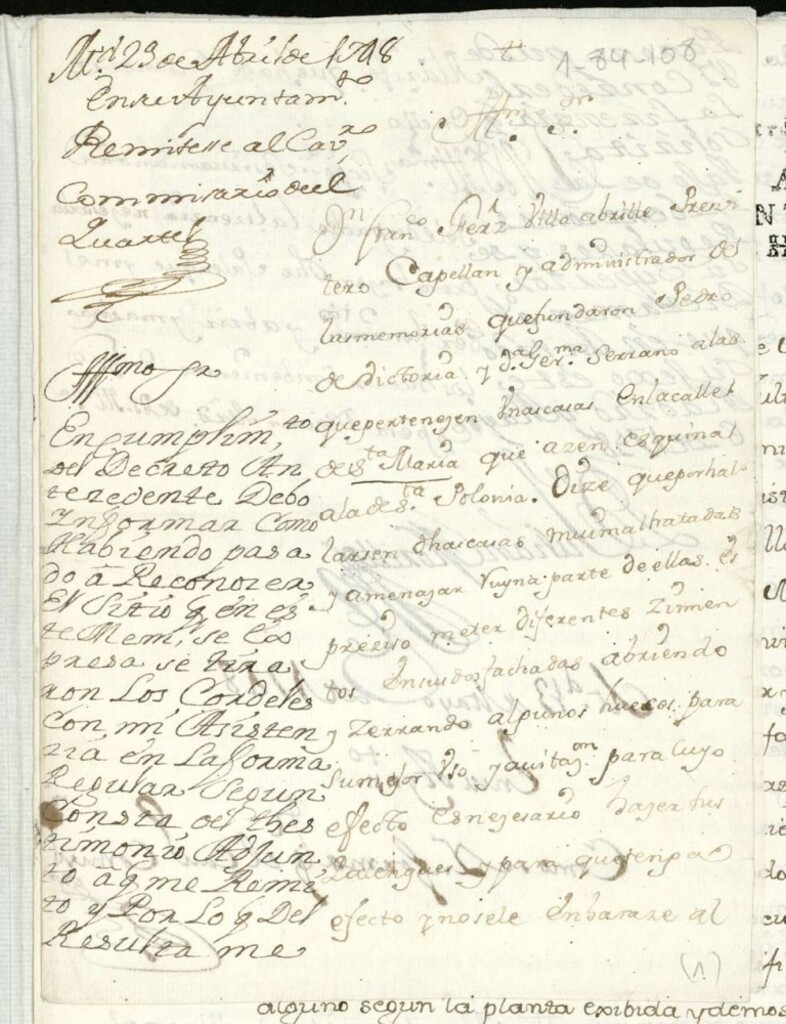 Md. 23 de Abril de 1748
En su Ayuntamto.
Remitese al Cavro.
Commisario del
Quartel
1-84-108
Illmo. Sr.
Dn. Franco. Ferz. Villa abrille Presvi
tero Capellan y administrador de
las memorias que fundaron Pedro
de Victoria y Da. Germa. Serrano a las
que pertenezen Unas casas en la calle
de Sta. Maria que azen esquina
a la de Sta. Polonia. Dize que por ha
llarse en dhas casas mui mal tratadas
y amenazar Ruyna parte de ellas. es
preziso meter diferentes Zimien
tos en sus dos fachadas abriendo
y zerrando algunos huecos para
su mejor Uso y avitazon. para cuyo
efecto es nezesario hazer sus
y para que tenga
efecto y no se le enbaraze al
Illmo Sr
En cumplimto.
del Decreto An
tezedente Debo
Informar Como
Habiendo pasa
do a Reconozer
El Sitio q en es
te Mem. se es
presa se tira
ron Los Cordeles
Con mi Asisten
zia en La forma
Regular Segun
Consta del thes
timonio Adjun
to a q me Remi
to y Por Lo q Del
Resulta me
(1)
alguno segun la planta exibida y demos